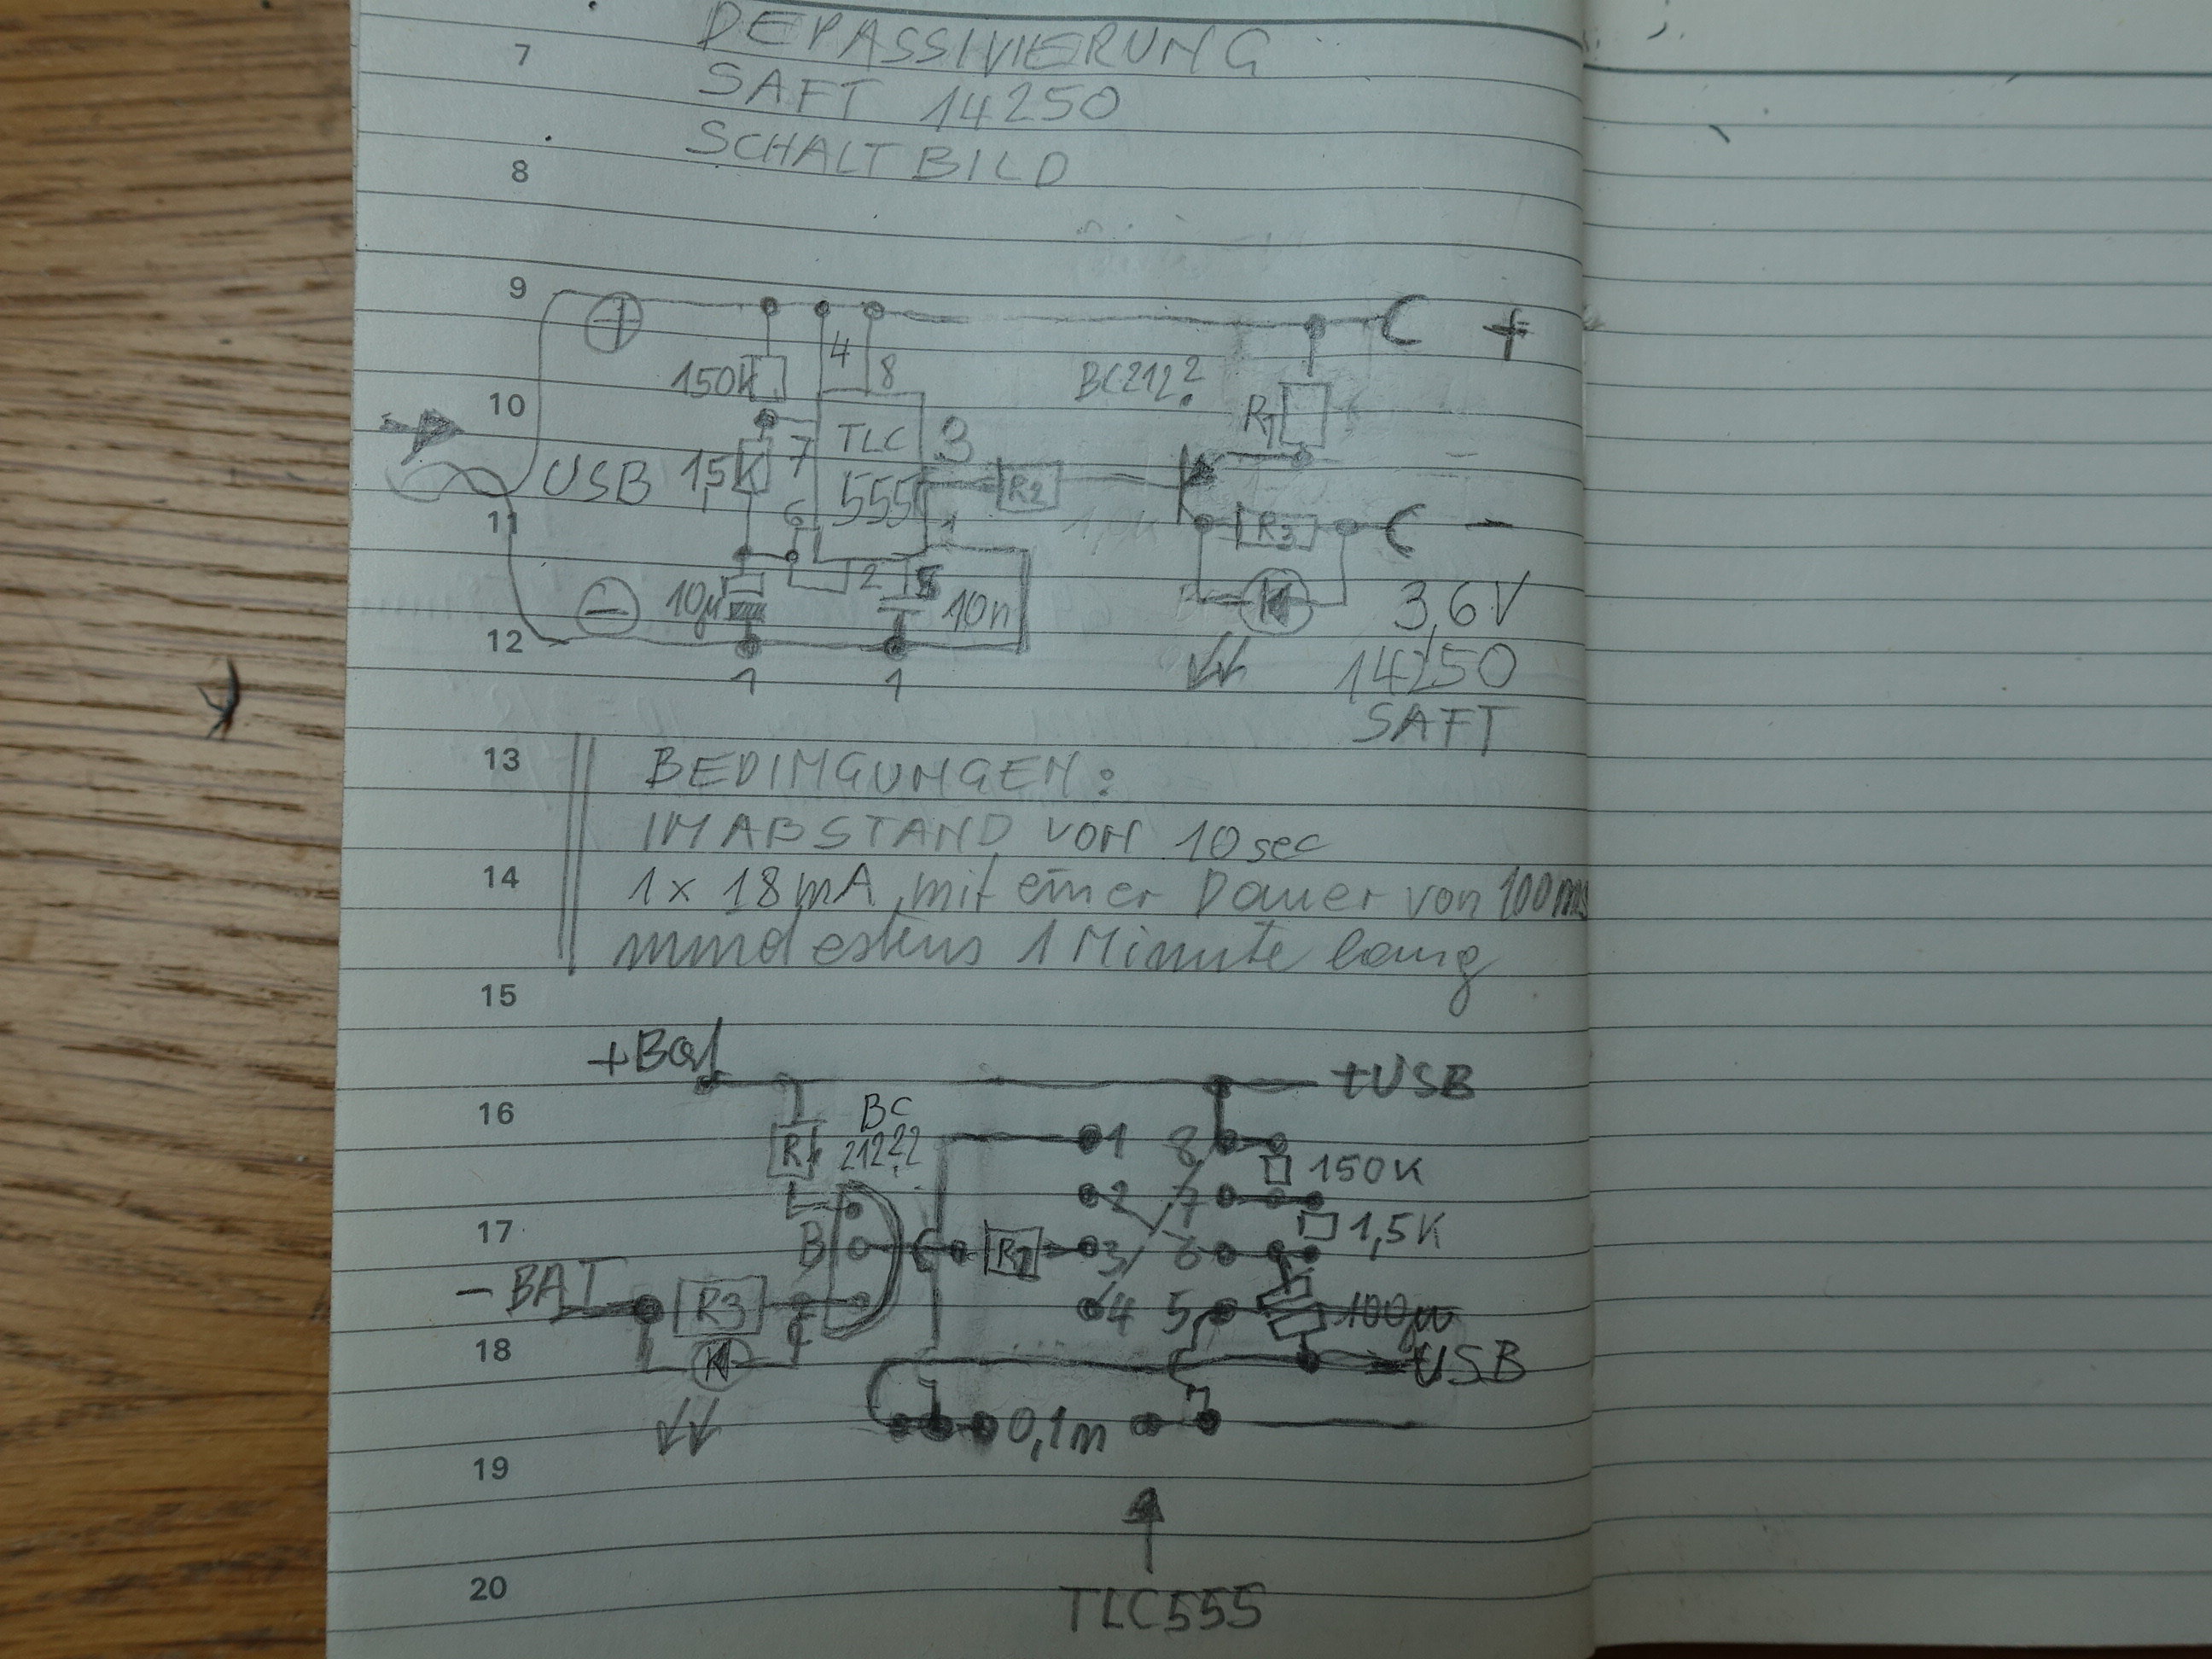 7
DEPASSIVIERUNG
SAFT 14250
8
SCHALTBILD
9
+
+
4
8
150K
BC212?
10
R1
TLC
3
7
USB
1,5K
555
R2
6
11
1
R3
-
2
5
10µ
10n
3,6V
-
12
1
1
14250
SAFT
13
BEDINGUNGEN:
IM ABSTAND VON 10 sec
14
1x 18mA mit einer Dauer von 100ms
mindestens 1 Minute lang
15
+Bat
+USB
16
BC
212??
R1
1
8
150K
2
7
17
B
R2
3
6
1,5K
-BAT
R3
C
4
5
100µ
18
-USB
0,1m
19
TLC555
20